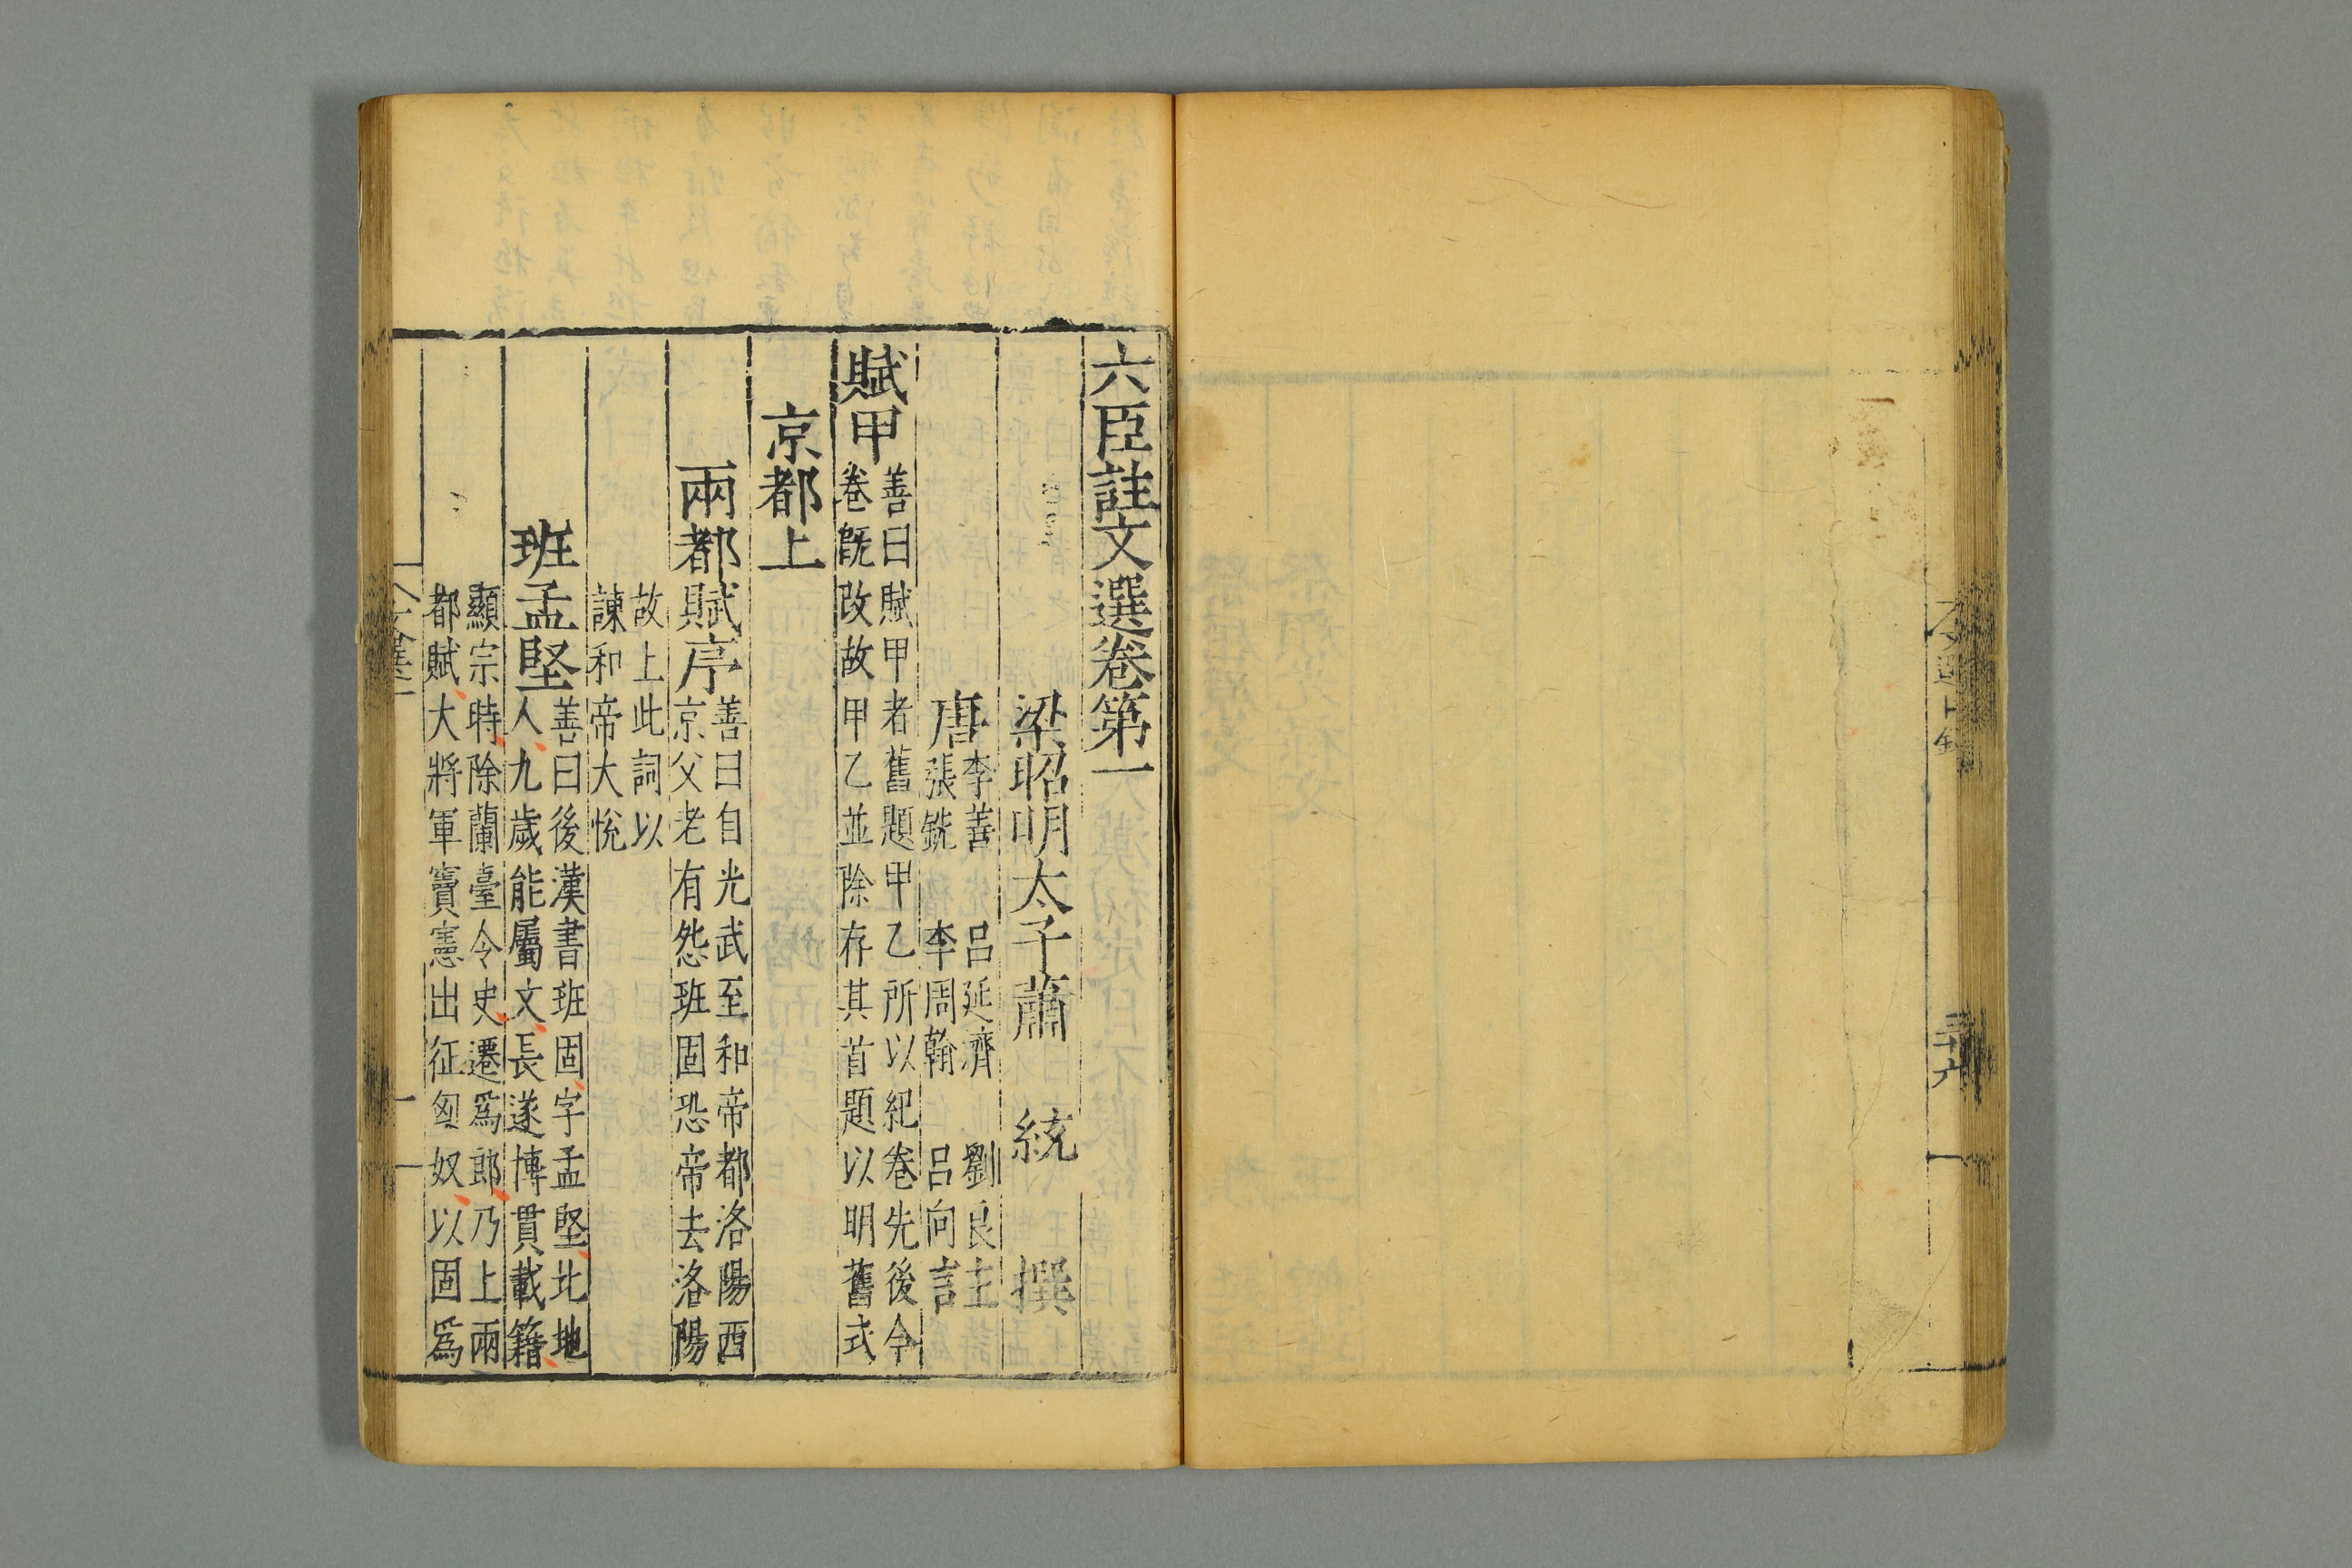 六臣註文選卷第一
梁昭明太子蕭 統 撰
唐李善 呂延濟 劉良註
張銑 李周翰 呂向
賦甲善曰賦甲者舊題甲乙所以紀卷先後今
卷旣改故甲乙並除存其首題以明舊式
京都上
兩都賦序善曰自光武至和帝都洛陽西
京父老有怨班固恐帝去洛陽
故上此詞以
諫和帝大悅
班孟堅善曰後漢書班固字孟堅北地
人九歲能屬文長遂博貫載籍
顯宗時除蘭臺令史遷爲郎乃上兩
都賦大將軍竇憲出征匈奴以固爲